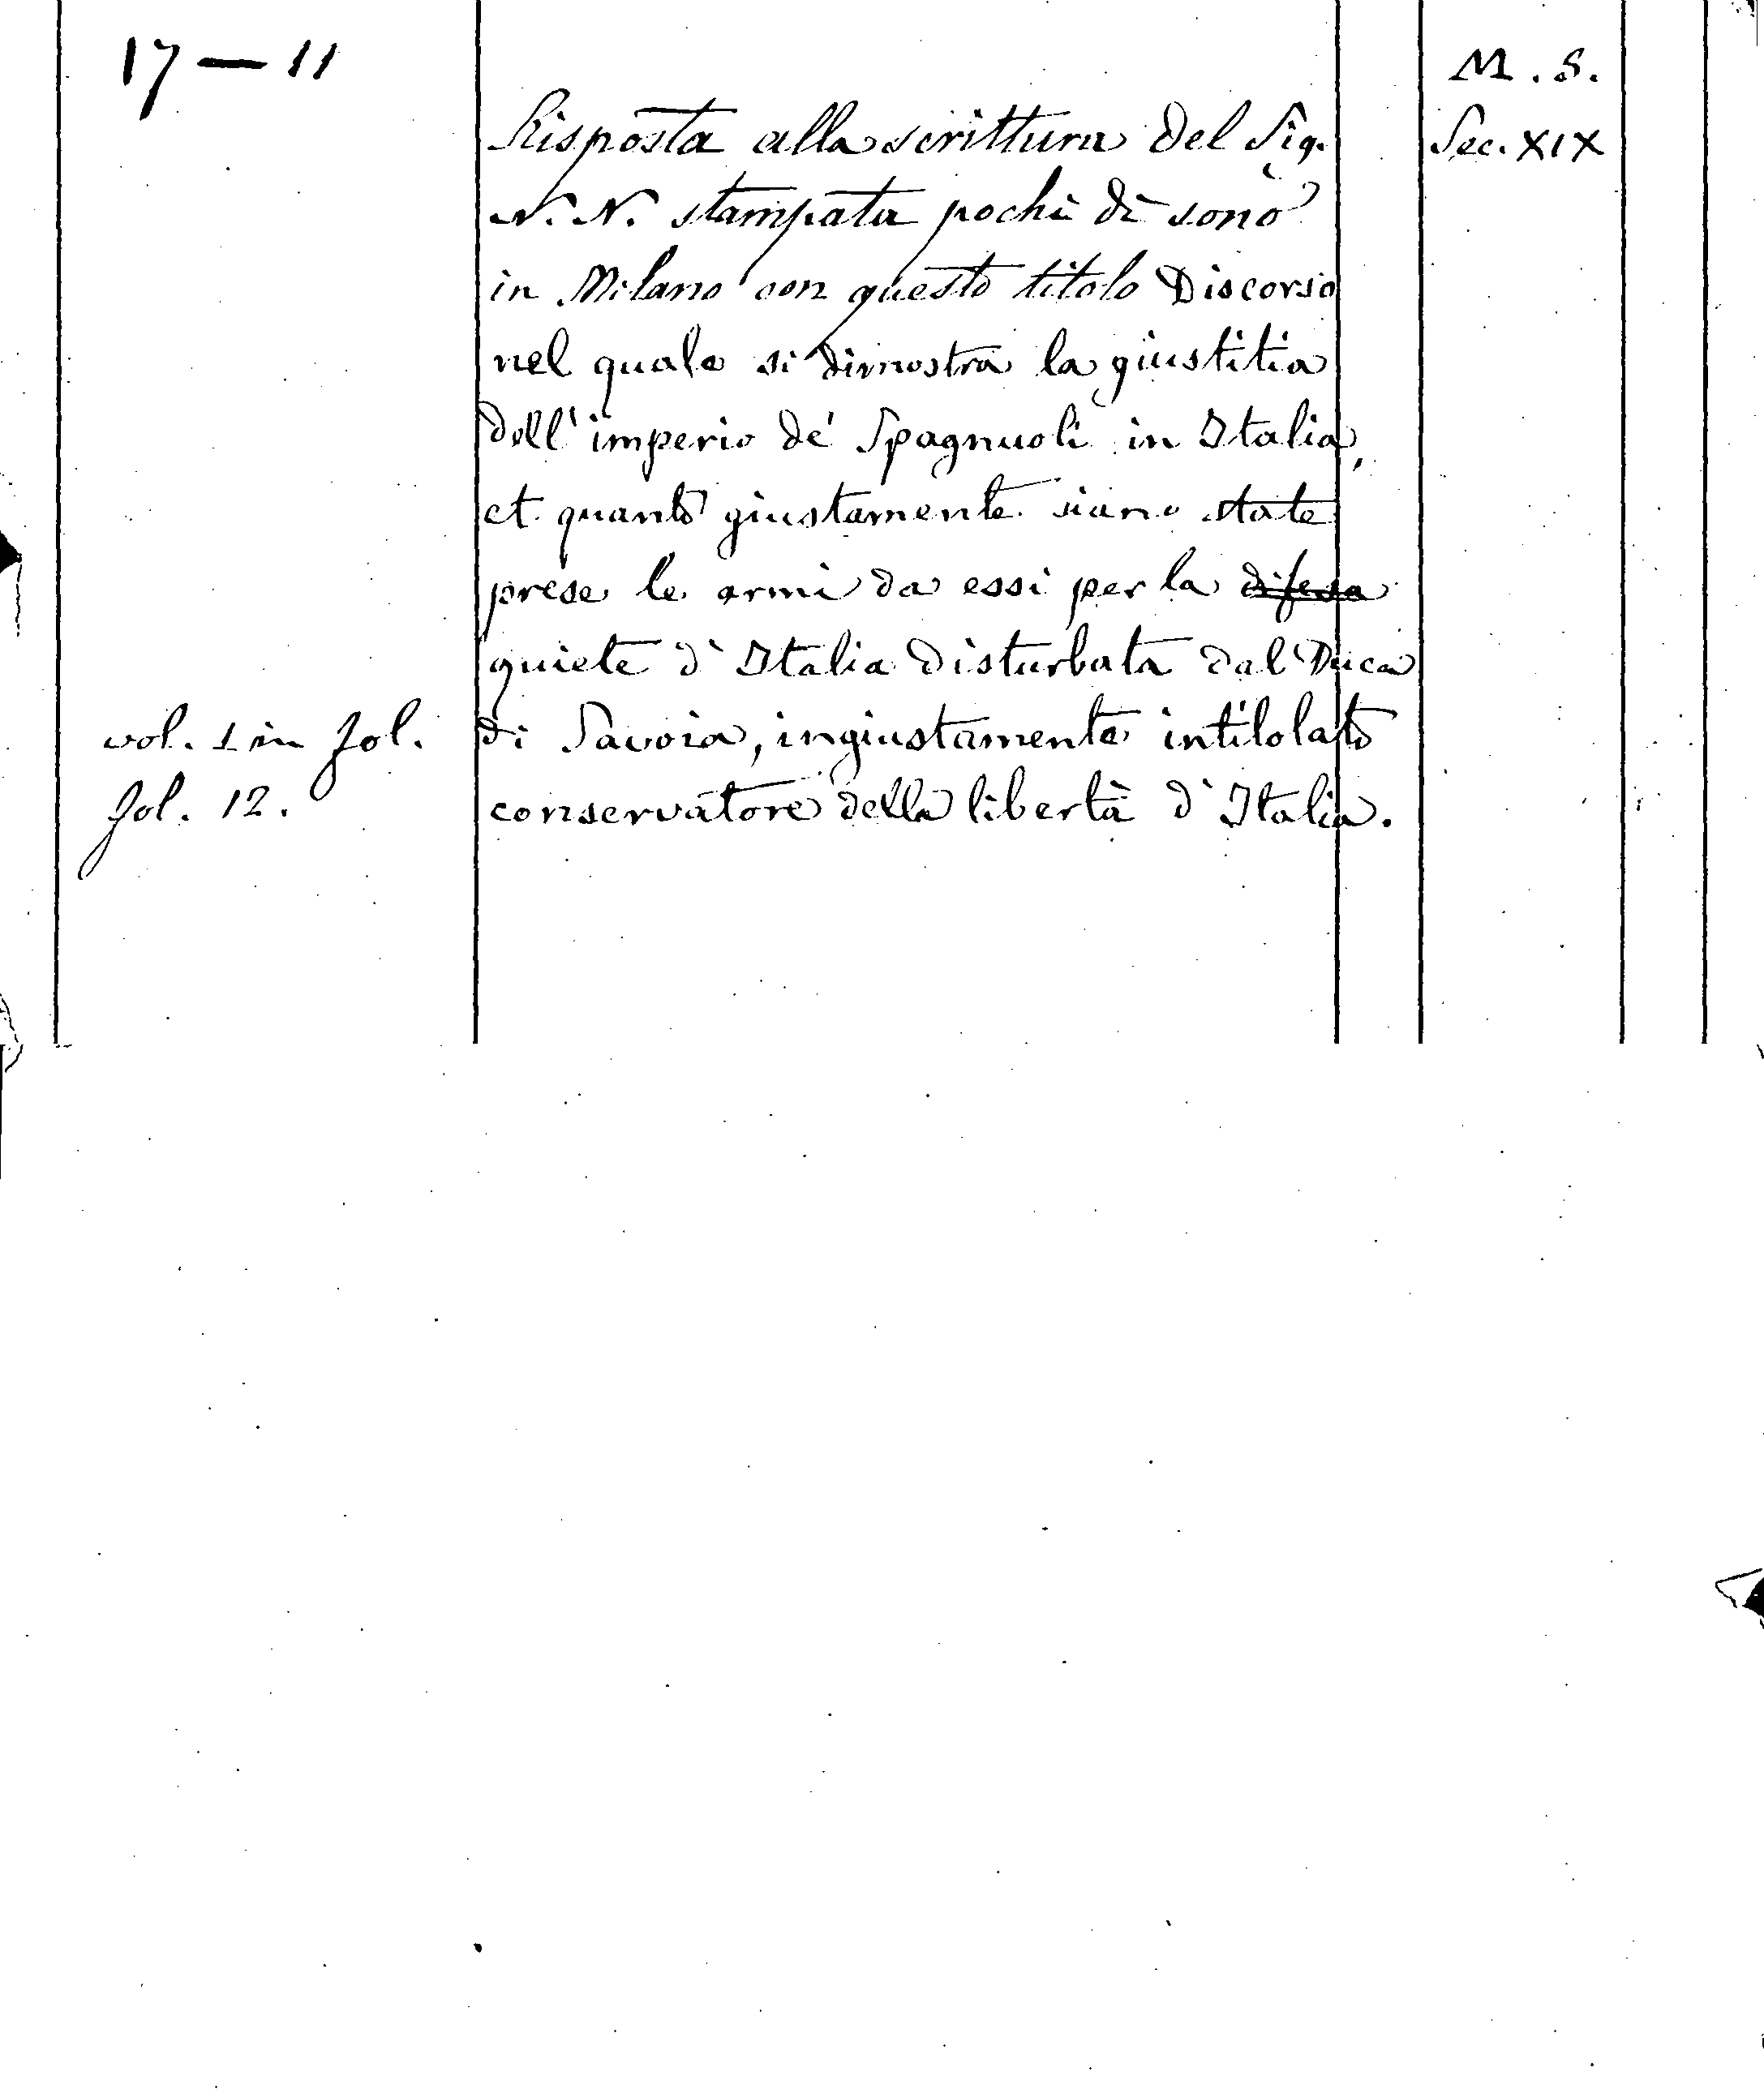 17 — 11
M. S.
Sec. XIX
Risposta alla scrittura del Sig.
N. N. stampata pochi dì sono
in Milano con questo titolo Discorso
nel quale si dimostra la giustitia
dell' imperio de' Spagnuoli in Italia,
et quanto giustamente siano state
prese le armi da essi per la difesa
quiete d' Italia disturbata dal Duca
di Savoia, ingiustamente intitolato
conservatore della libertà d' Italia.
vol. 1 in fol.
fol. 12.